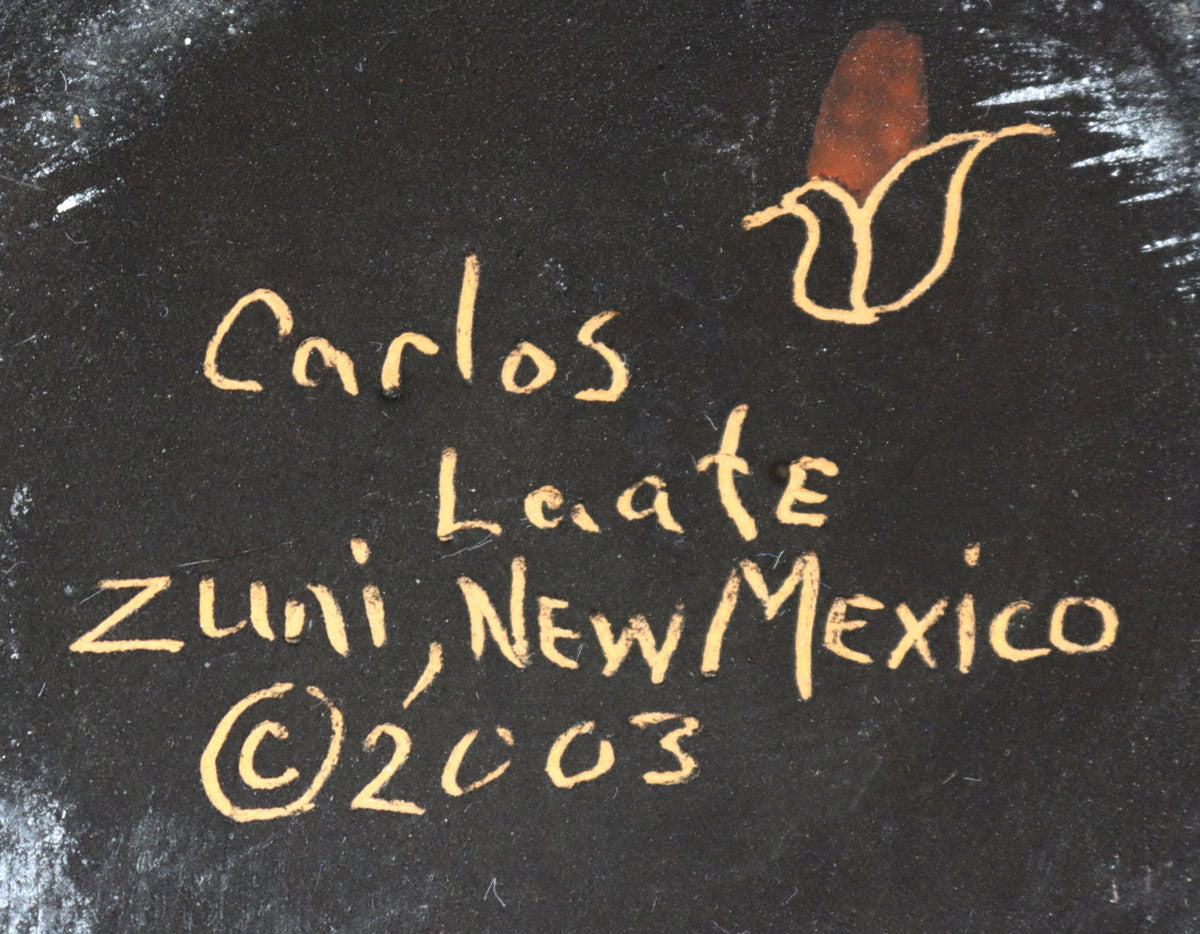 Carlos
Laate
Zuni, New Mexico
©2003